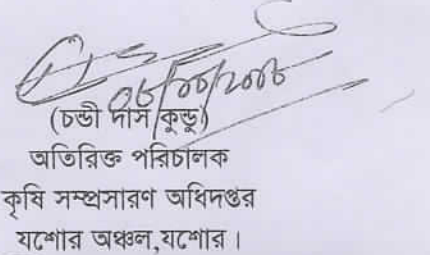 (চন্ডী দাস কুন্ডু)
অতিরিক্ত পরিচালক
কৃষি সম্প্রসারণ অধিদপ্তর
যশোর অঞ্চল,যশোর।